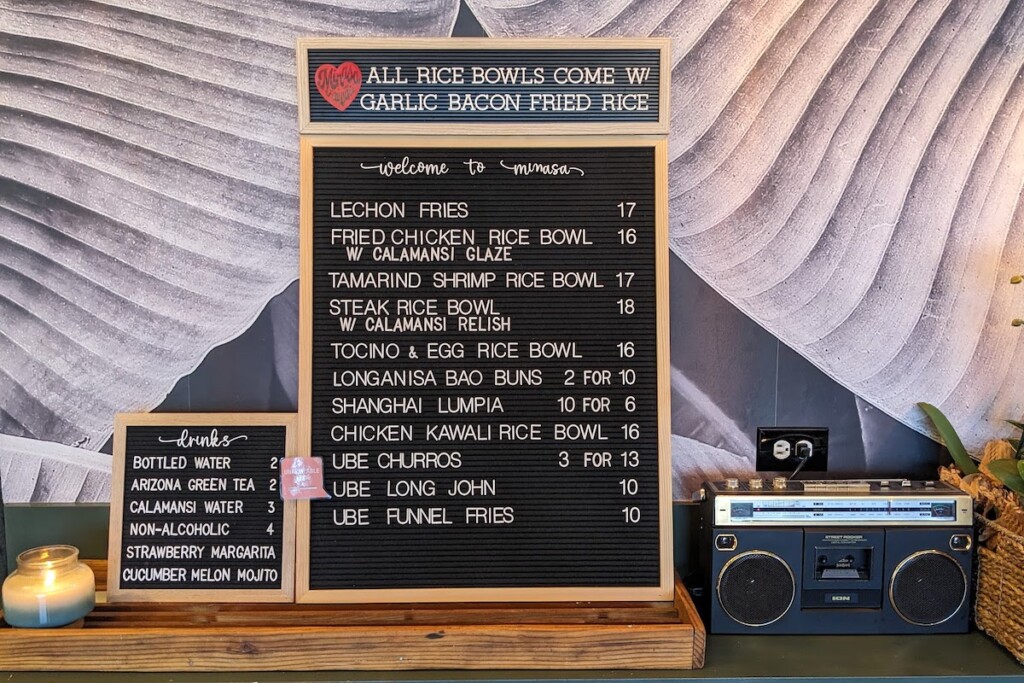 ALL RICE BOWLS COME W/
GARLIC BACON FRIED RICE
welcome to minasa
LECHON FRIES 17
FRIED CHICKEN RICE BOWL 16
W/ CALAMANSI GLAZE
TAMARIND SHRIMP RICE BOWL 17
STEAK RICE BOWL 18
W/ CALAMANSI RELISH
TOCINO & EGG RICE BOWL 16
LONGANISA BAO BUNS 2 FOR 10
SHANGHAI LUMPIA 10 FOR 6
CHICKEN KAWALI RICE BOWL 16
UBE CHURROS 3 FOR 13
UBE LONG JOHN 10
UBE FUNNEL FRIES 10
drinks
BOTTLED WATER 2
ARIZONA GREEN TEA 2
CALAMANSI WATER 3
NON-ALCOHOLIC 4
STRAWBERRY MARGARITA
CUCUMBER MELON MOJITO